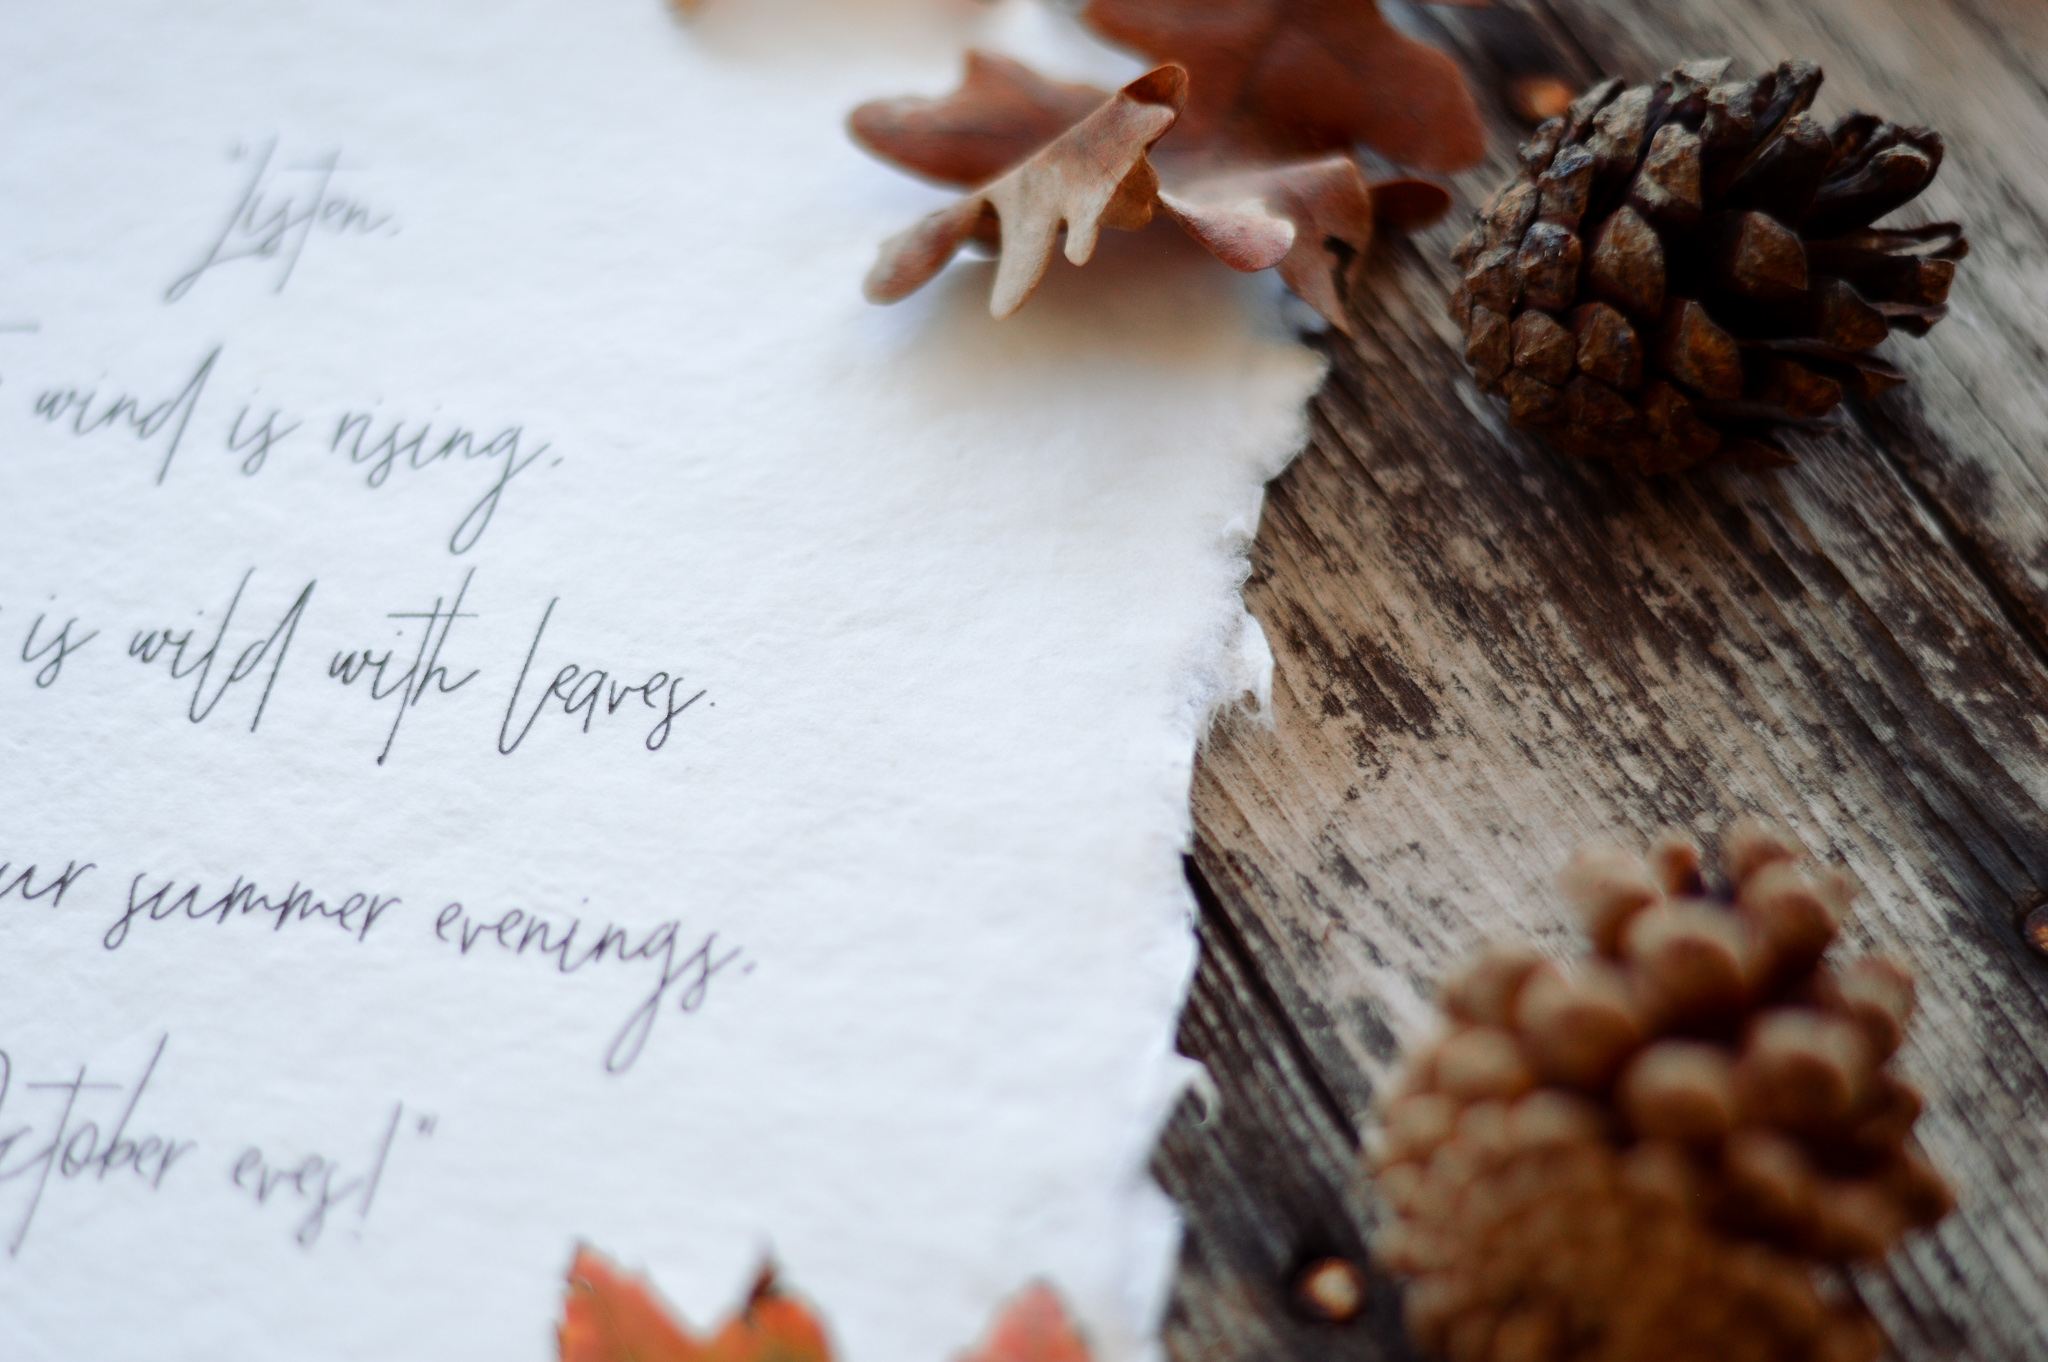 "Listen.
wind is rising.
is wild with leaves.
ur summer evenings.
ctober eves!"